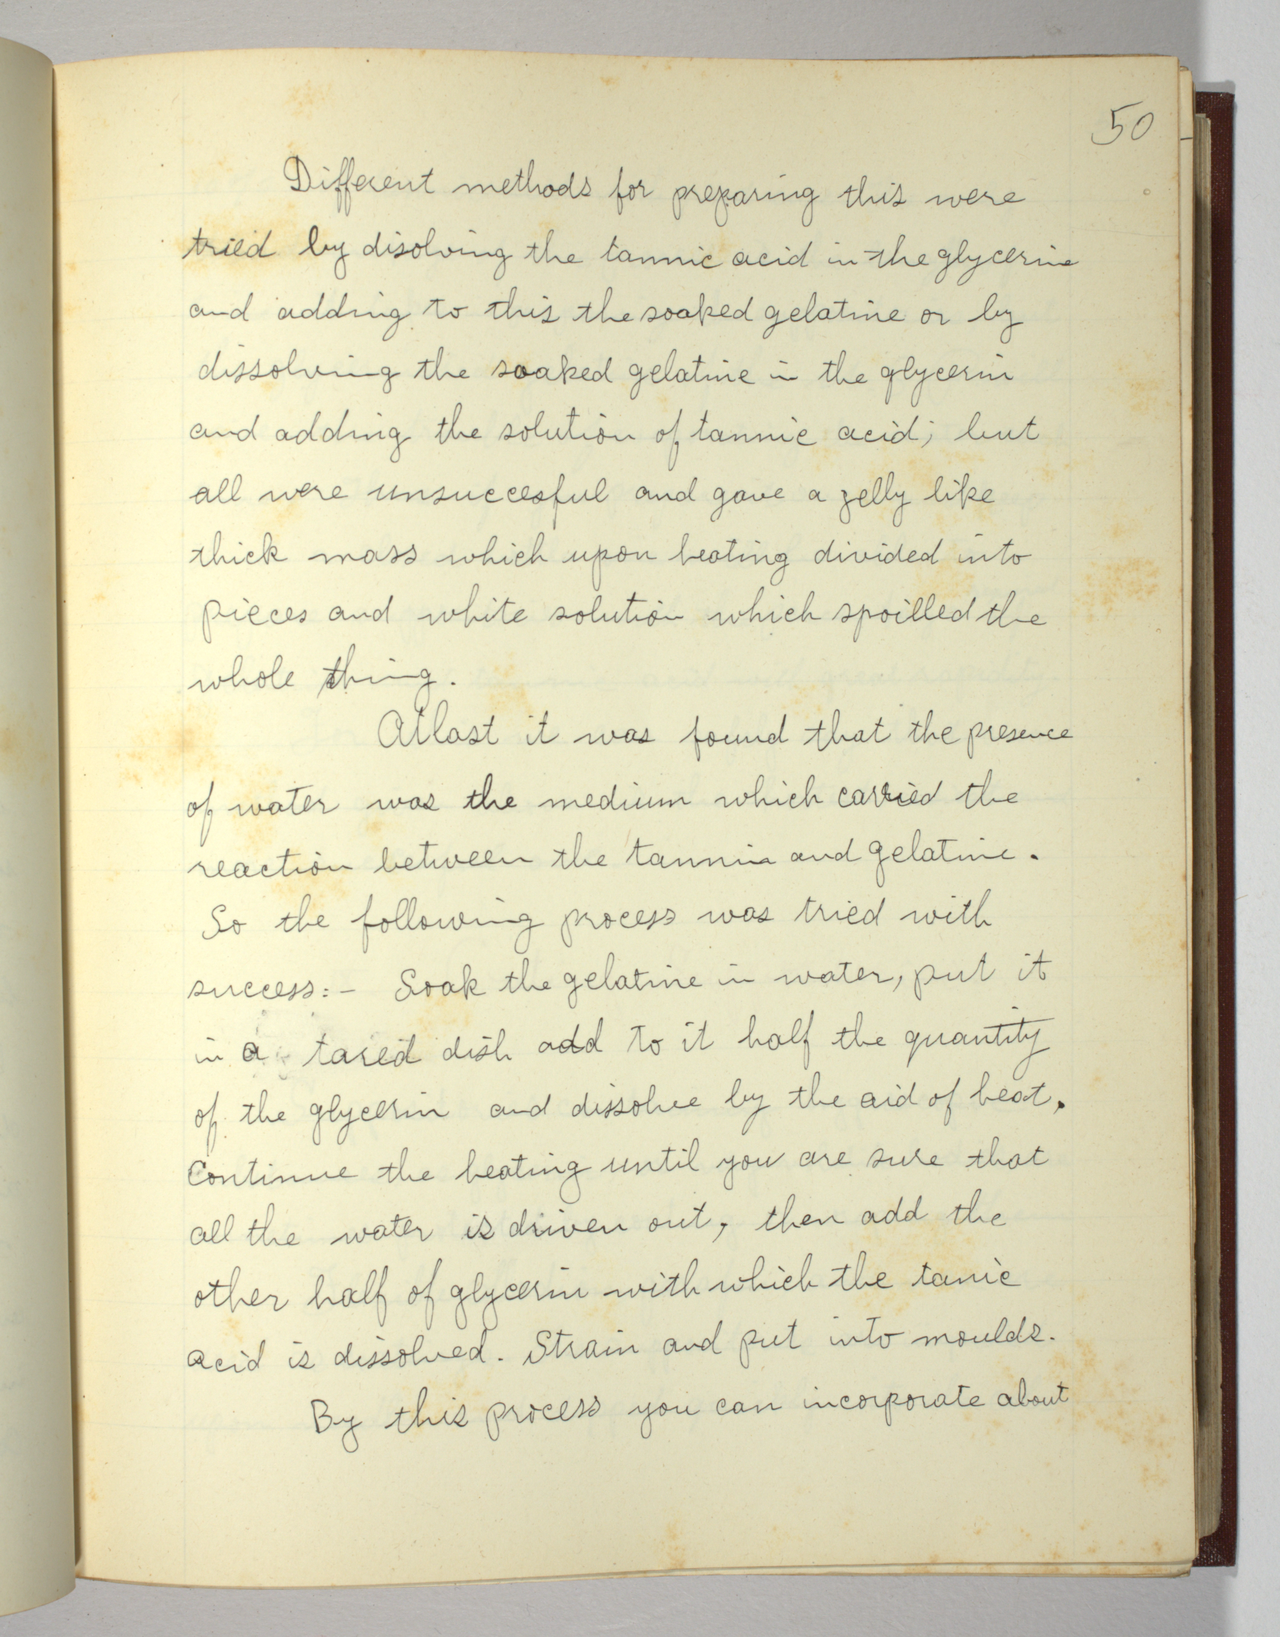 50
Different methods for preparing this were
tried by disolving the tannic acid in the glycerine
and adding to this the soaked gelatine or by
dissolving the soaked gelatine in the glycerin
and adding the solution of tannic acid; but
all were unsuccesful and gave a jelly like
thick mass which upon heating divided into
pieces and white solution which spoilled the
whole thing.
At last it was found that the presence
of water was the medium which carried the
reaction between the tannin and gelatine.
So the following process was tried with
success:- Soak the gelatine in water, put it
in a tared dish add to it half the quantity
of the glycerin and dissolve by the aid of heat.
Continue the heating until you are sure that
all the water is driven out, then add the
other half of glycerin with which the tanic
acid is dissolved. Strain and put into moulds.
By this process you can incorporate about